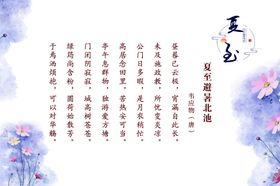 夏至
夏至避暑北池
韦应物（唐）
昼晷已云极，宵漏自此长。
未及施政教，所忧变炎凉。
公门日多暇，是月农稍忙。
高居念田里，苦热安可当。
亭午息群物，独游爱方塘。
门闭阴寂寂，城高树苍苍。
绿筠尚含粉，圆荷始散芳。
于焉洒烦抱，可以对华觞。